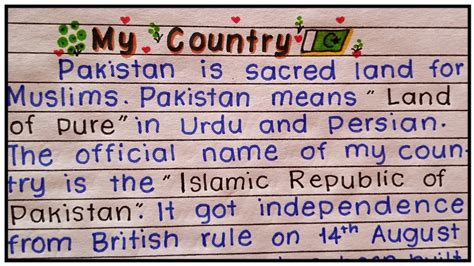 My Country
Pakistan is sacred land for
Muslims. Pakistan means "Land
of pure" in Urdu and Persian.
The official name of my coun-
try is the "Islamic Republic of
Pakistan". It got independence
from British rule on 14th August